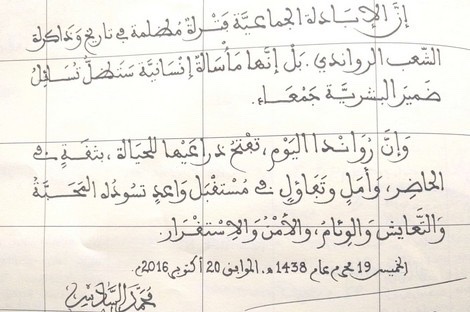 إنَّ الإبَادلة الجماعيَّة فَتْرلةٌ مُظلمة في تاريخ وَذاكرلة
الشّعب الرواندي. بَلْ إنَّها مَأسَالةٌ إنْسَانيَّة سَتَظلُّ تُسَائِلُ
ضَميرَ البشريَّة جَمْعَاء.
وَإنَّ رُوَانْدَا اليَوْم، تفْتحُ ذراعَيْها للحيَالة، بثقَةٍ في
الحَاضِر، وَأمَلٍ وَتفَاؤلٍ في مُسْتقْبَل وَاعدٍ تسُودُلهُ المَحَبَّةُ
وَالتَّعَايش وَالوِئامُ، وَالأمْنُ وَالاِسْتقْرار.
الخميس 19 محرم عام 1438 هـ. الموافق 20 أكتوبر 2016م.
مُحمَّد السَّادس